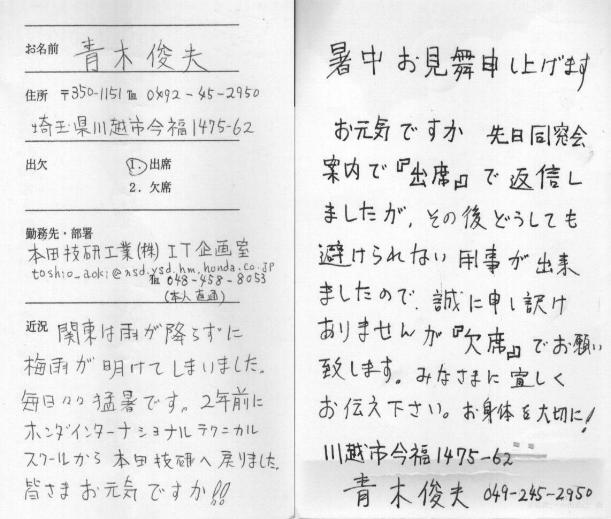 お名前 青木俊夫
住所 〒350-1151 ℡ 0492-45-2950
埼玉県川越市今福1475-62
出欠 1. 出席
2. 欠席
勤務先・部署
本田技研工業(株) IT企画室
toshio_aoki@nsd.ysd.hm.honda.co.jp
℡ 048-458-8053
(本人直通)
近況 関東は雨が降らずに
梅雨が明けてしまいました。
毎日々々猛暑です。2年前に
ホンダインターナショナルテクニカル
スクールから本田技研へ戻りました。
皆さまお元気ですか!!
暑中お見舞申し上げます
お元気ですか 先日同窓会
案内で『出席』で返信し
ましたが、その後どうしても
避けられない用事が出来
ましたので、誠に申し訳け
ありませんが『欠席』でお願い
致します。みなさまに宜しく
お伝え下さい。お身体を大切に!
川越市今福1475-62
青木俊夫 049-245-2950